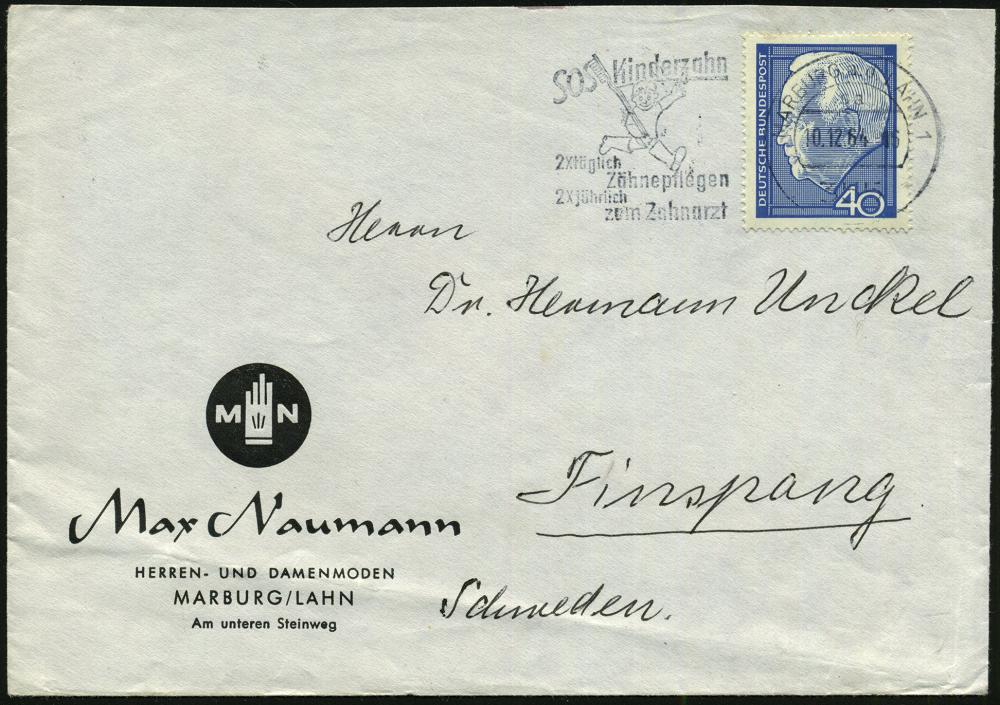 SOS Kinderzahn
2x täglich
Zähnepflegen
2x jährlich
zum Zahnarzt
DEUTSCHE BUNDESPOST
40
MARBURG a.d. LAHN 1
a
10.12.64
Herrn
Dr. Hermann Unckel
Finspang
Schweden.
M N
Max Naumann
HERREN- UND DAMENMODEN
MARBURG/LAHN
Am unteren Steinweg